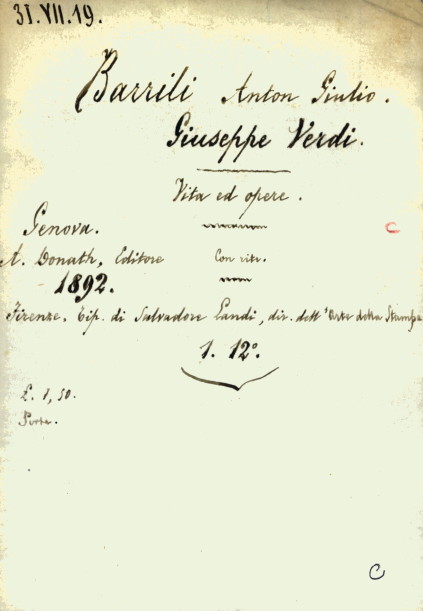 31.VII.19.
Barrili Anton Giulio.
Giuseppe Verdi.
Vita ed opere.
Genova.
A. Donath, Editore
Con ritr.
1892.
Firenze. Tip. di Salvadore Landi, dir. dell'Arte della Stampa
1. 12°.
£. 1,50.
C
C